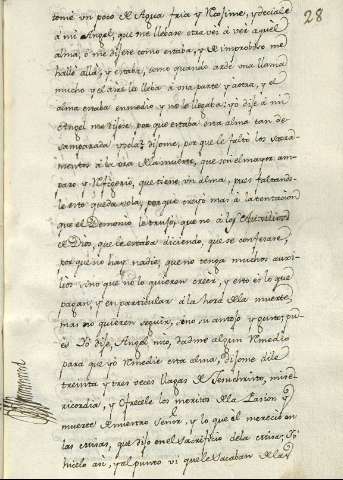 28
tomé un poco de Agua fria y Recosime, y deciale
á mi Angel, que me llebase otra vez á ver aquel
alma, ó me dijese como estaba, y de improbiso me
halle allá, y estaba, como quando arde una llama
mucho y el aire la lleba á una parte y á otra, y el
alma estaba en medio y no le llegaba; yo dije á mi
Angel me dijese, por que estaba esta alma tan de-
samparada y sola; dijome, por que le faltó los Sacra-
mentos á la ora de la muerte, que son el mayor am-
paro y Refigerio, que tiene un alma, pues faltando-
le esto queda sola, porque creyó mas á la tentacion
que el Demonio le trujo, que no á los Auxilios
de Dios, que le estaba diciendo, que se confesase,
por que no hay nadie, que no tenga muchos auxi-
lios sino que no lo quieren creer, y esto es lo que
pagan, y en particular á la hora de la muerte,
mas no quieren seguir, sino su antojo y gusto, pu-
es Yo dije, Angel mio, dadme algun Remedio
para que yo Remedie esta alma, dijome dile
treinta y tres veces llagas de Jesuchristo, mise-
ricordia, y ofrecele los meritos de la Pasion y
muerte de nuestro Señor, y lo que él mereció en
las cruzas, que dijo en el sacrificio de la cruz, Yo
hicelo asi, y al punto vi que le sacaban de la